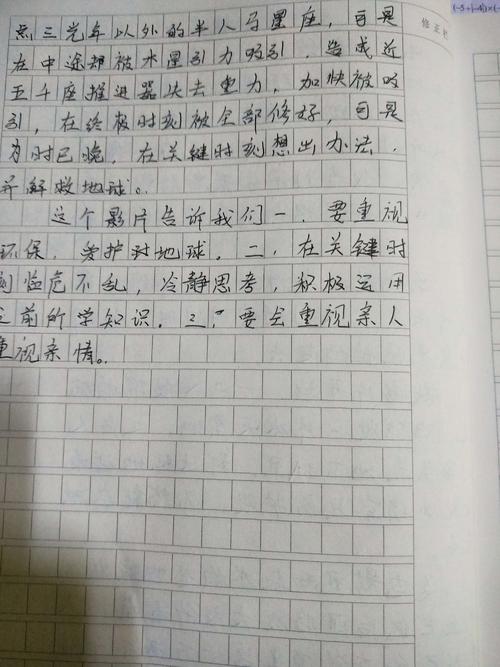 点三光年以外的半人马星座，可是
在中途却被木星引力吸引．造成近
五千座推进器失去重力，加快被吸
引，在终极时刻被全部修好，可是
为时已晚，在关键时刻想出办法．
并解救地球。
这个影片告诉我们一．要重视
环保．爱护对地球．二．在关键时
刻临危不乱，冷静思考，积极运用
之前所学知识．三，要会重视亲人
重视亲情。
修正栏